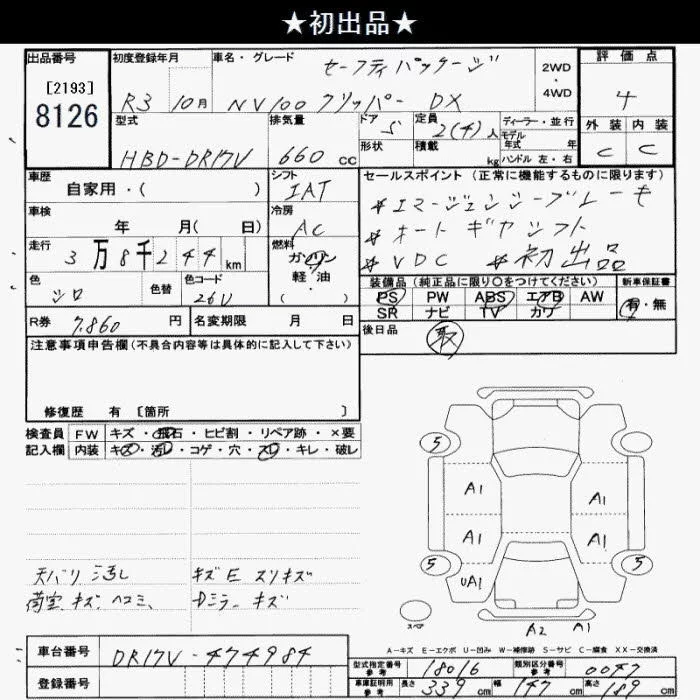 ★初出品★
出品番号
[2193]
8126
初度登録年月
R3 10月
車名・グレード
セーフティパッケージ
NV100 クリッパー DX
2WD
・
4WD
評価点
4
外装 内装
C C
型式
HBD-DR17V
排気量
660 cc
ドア
5
形状
定員
2(4)人
積載
kg
ディーラー・並行
モデル
年式 年
ハンドル 左・右
車歴
自家用・( )
シフト
IAT
車検
年 月( 日)
冷房
AC
走行
3万8千244km
燃料
ガソリン
軽・油
( )
色
シロ
色替
色コード
26U
R券
7,860 円
名変期限 月 日
セールスポイント (正常に機能するものに限ります)
*エマージェンシーブレーキ
*オートギヤシフト
*VDC *初出品
装備品(純正品に限り○をつけてください)
PS PW ABS エアB AW
SR ナビ TV カワ
新車保証書
有・無
後日品
取
注意事項申告欄(不具合内容等は具体的に記入して下さい)
修復歴 有 [箇所 ]
検査員
記入欄
FW キズ・飛石・ヒビ割・リペア跡・×要
内装 キズ・汚れ・コゲ・穴・スレ・キレ・破レ
天バリ汚レ キズE スリキズ
荷室 キズ、ヘコミ、 Dミラー キズ
5
A1
A1
A1
A1
5
5
UA1
スペア
A2 A1
A-キズ E-エクボ U-凹み W-補修跡 S-サビ C-腐食 XX-交換済
車台番号
DR17V-474984
登録番号
型式指定番号
参考
18016
類別区分番号
参考
0047
車庫証明用
参考
長さ 339cm 幅 147cm 高さ 189cm